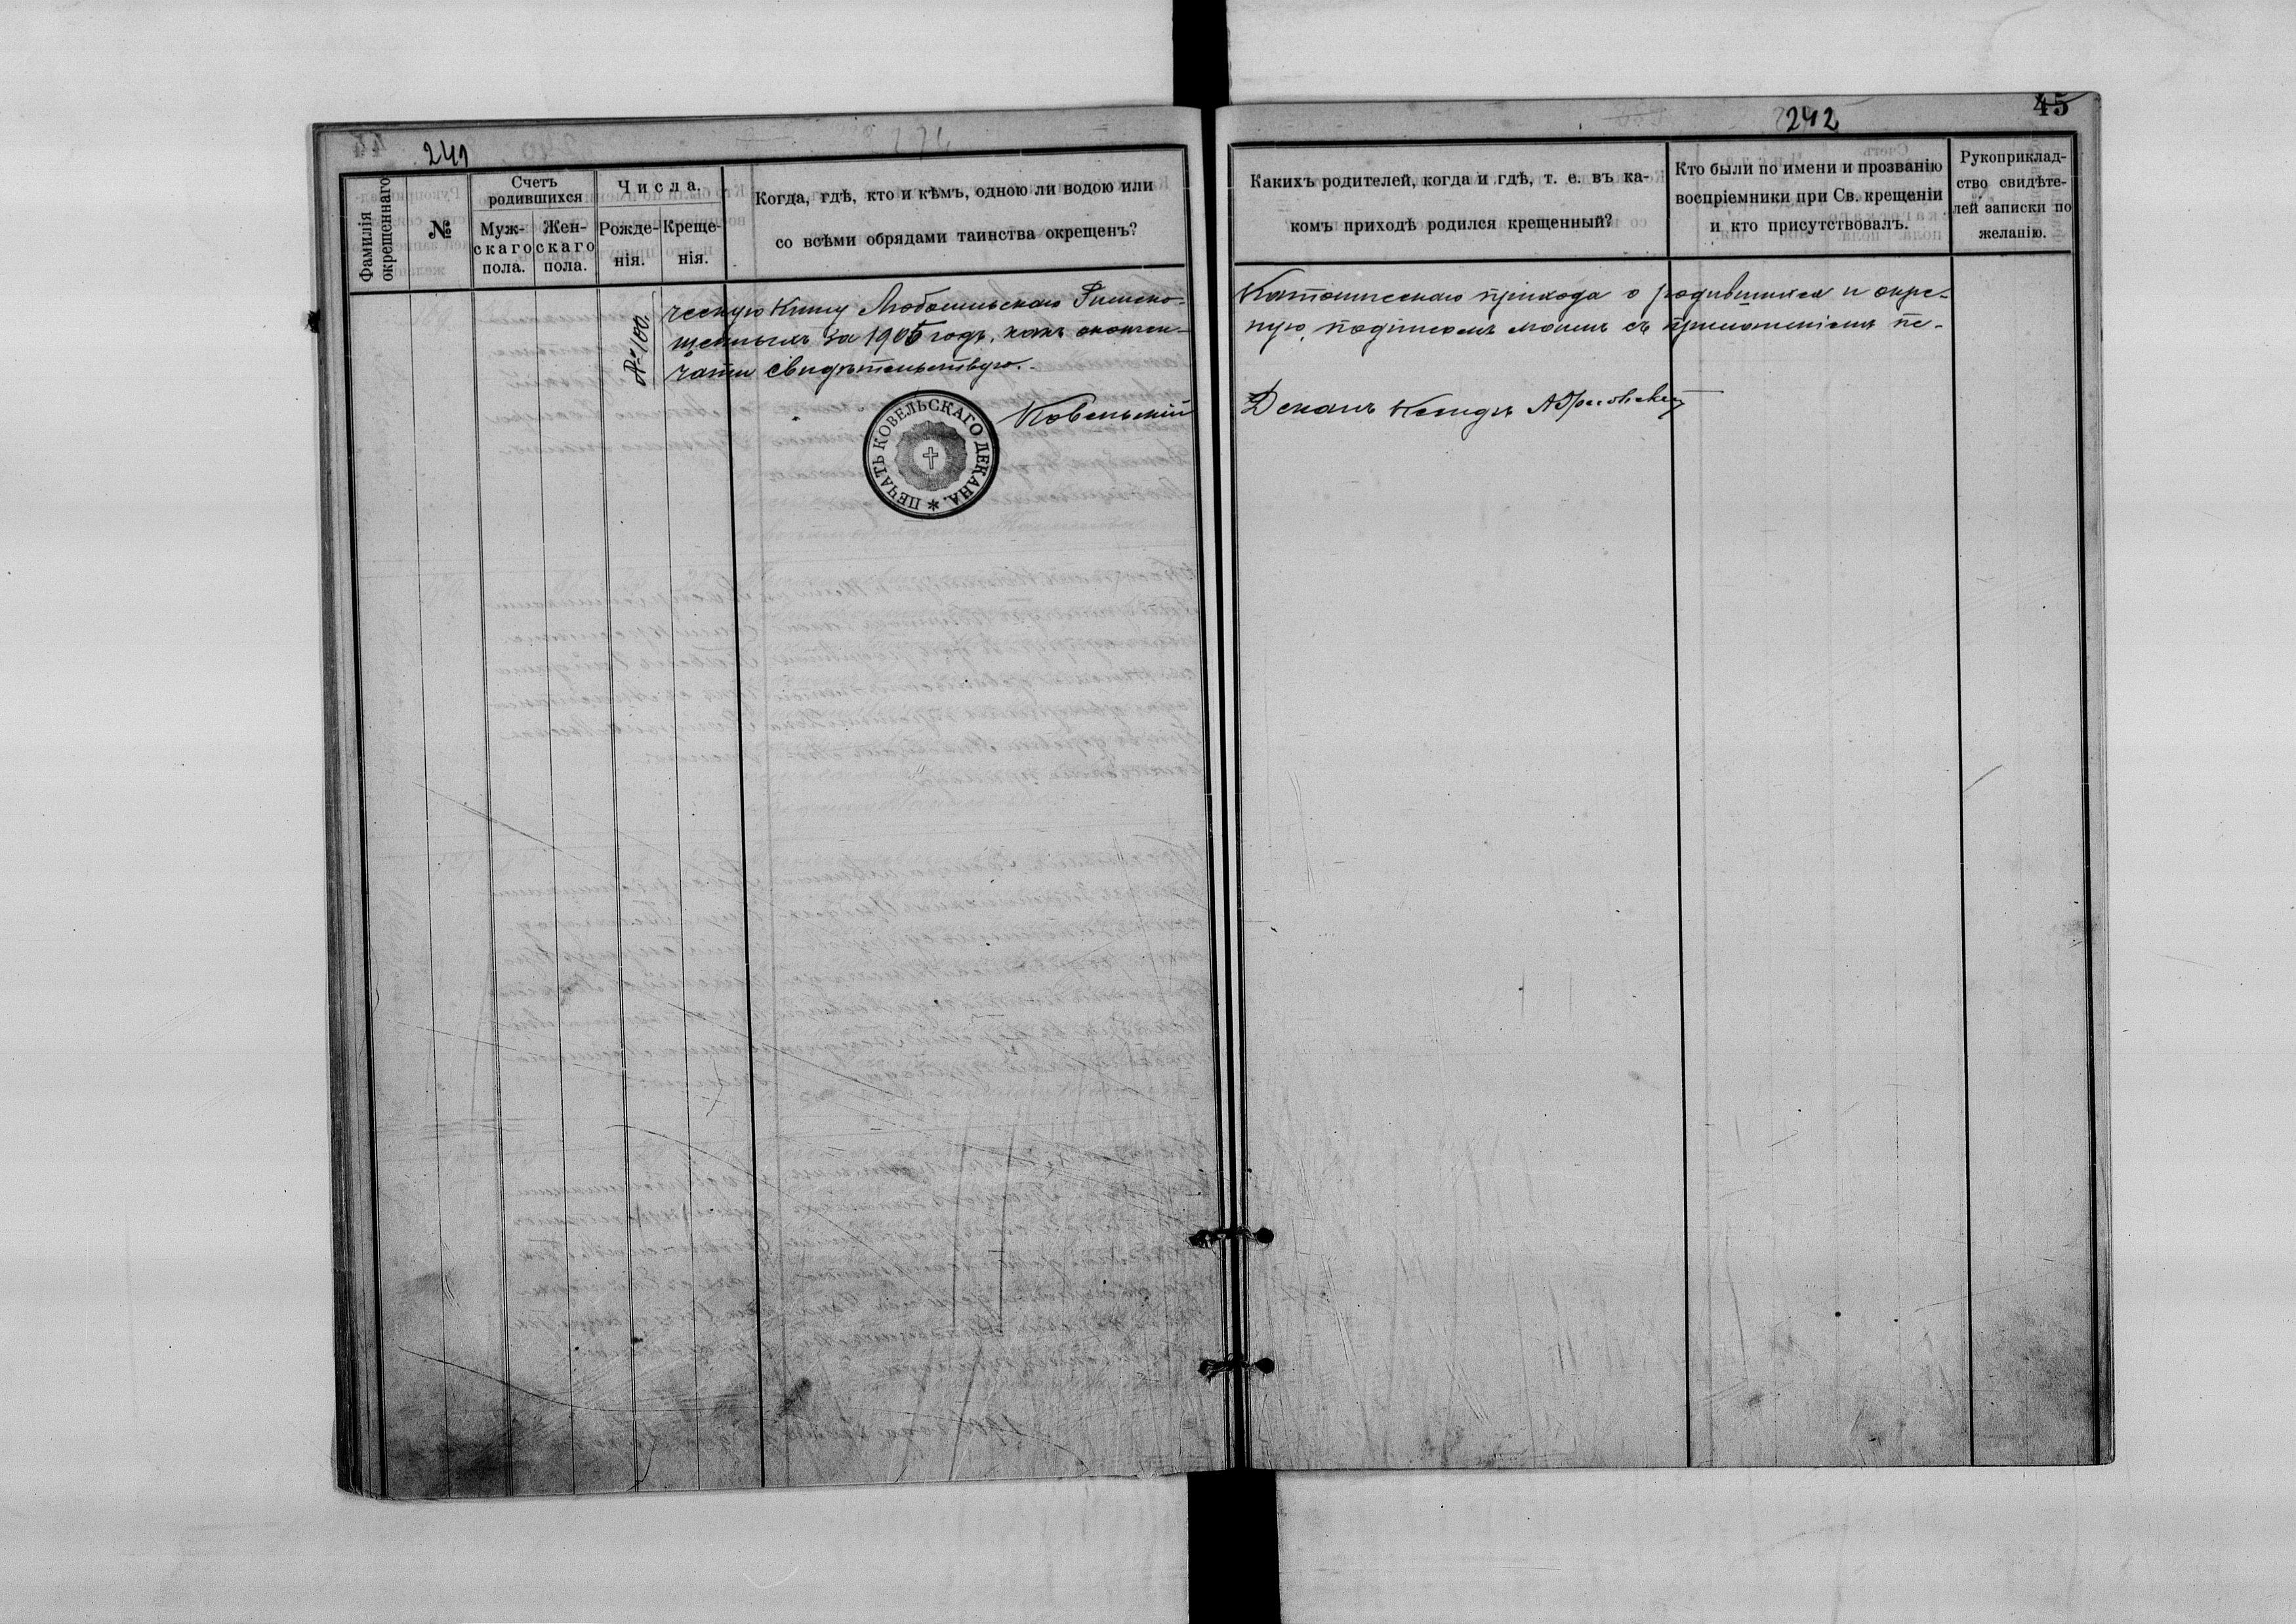 241
242
45
Фамилія окрещеннаго
№
Счетъ родившихся
Муж-скаго пола.
Жен-скаго пола.
Числа.
Рожде-нія.
Креще-нія.
Когда, гдѣ, кто и кѣмъ, одною ли водою или
со всѣми обрядами таинства окрещенъ?
Какихъ родителей, когда и гдѣ, т. е. въ ка-
комъ приходѣ родился крещенный?
Кто были по имени и прозванію
воспріемники при Св. крещеніи
и кто присутствовалъ.
Рукоприклад-
ство свидѣте-
лей записки по
желанію.
№ 100.
ческую книгу Любомльскаго Римско-Католическаго прихода о родившихся и окре-
щенныхъ за 1905 годъ, какъ окончен-ную, подписомъ моимъ съ приложеніемъ пе-
чати свидѣтельствую.
Ковельскій Деканъ Ксендзъ
ПЕЧАТЬ КОВЕЛЬСКАГО ДЕКАНА.